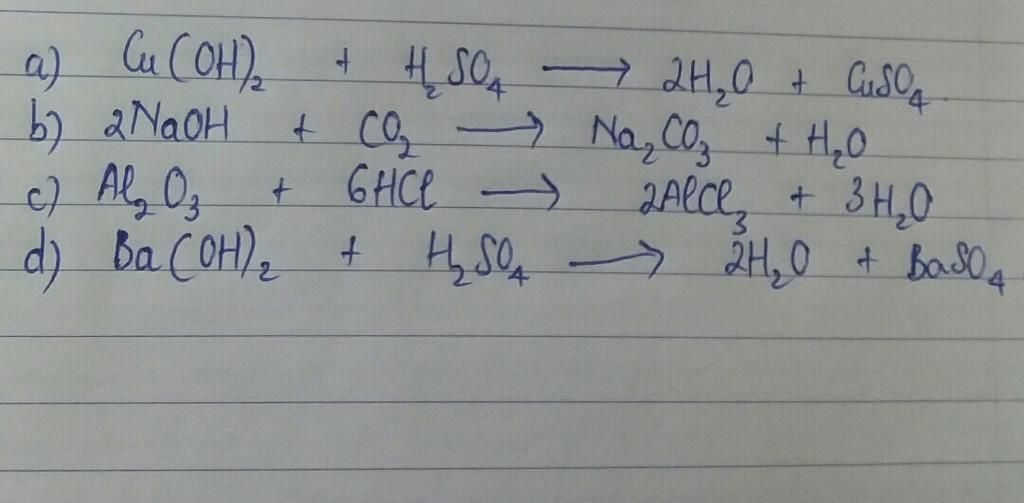 a) Cu(OH)₂ + H₂SO₄ ⟶ 2H₂O + CuSO₄
b) 2NaOH + CO₂ ⟶ Na₂CO₃ + H₂O
c) Al₂O₃ + 6HCl ⟶ 2AlCl₃ + 3H₂O
d) Ba(OH)₂ + H₂SO₄ ⟶ 2H₂O + BaSO₄